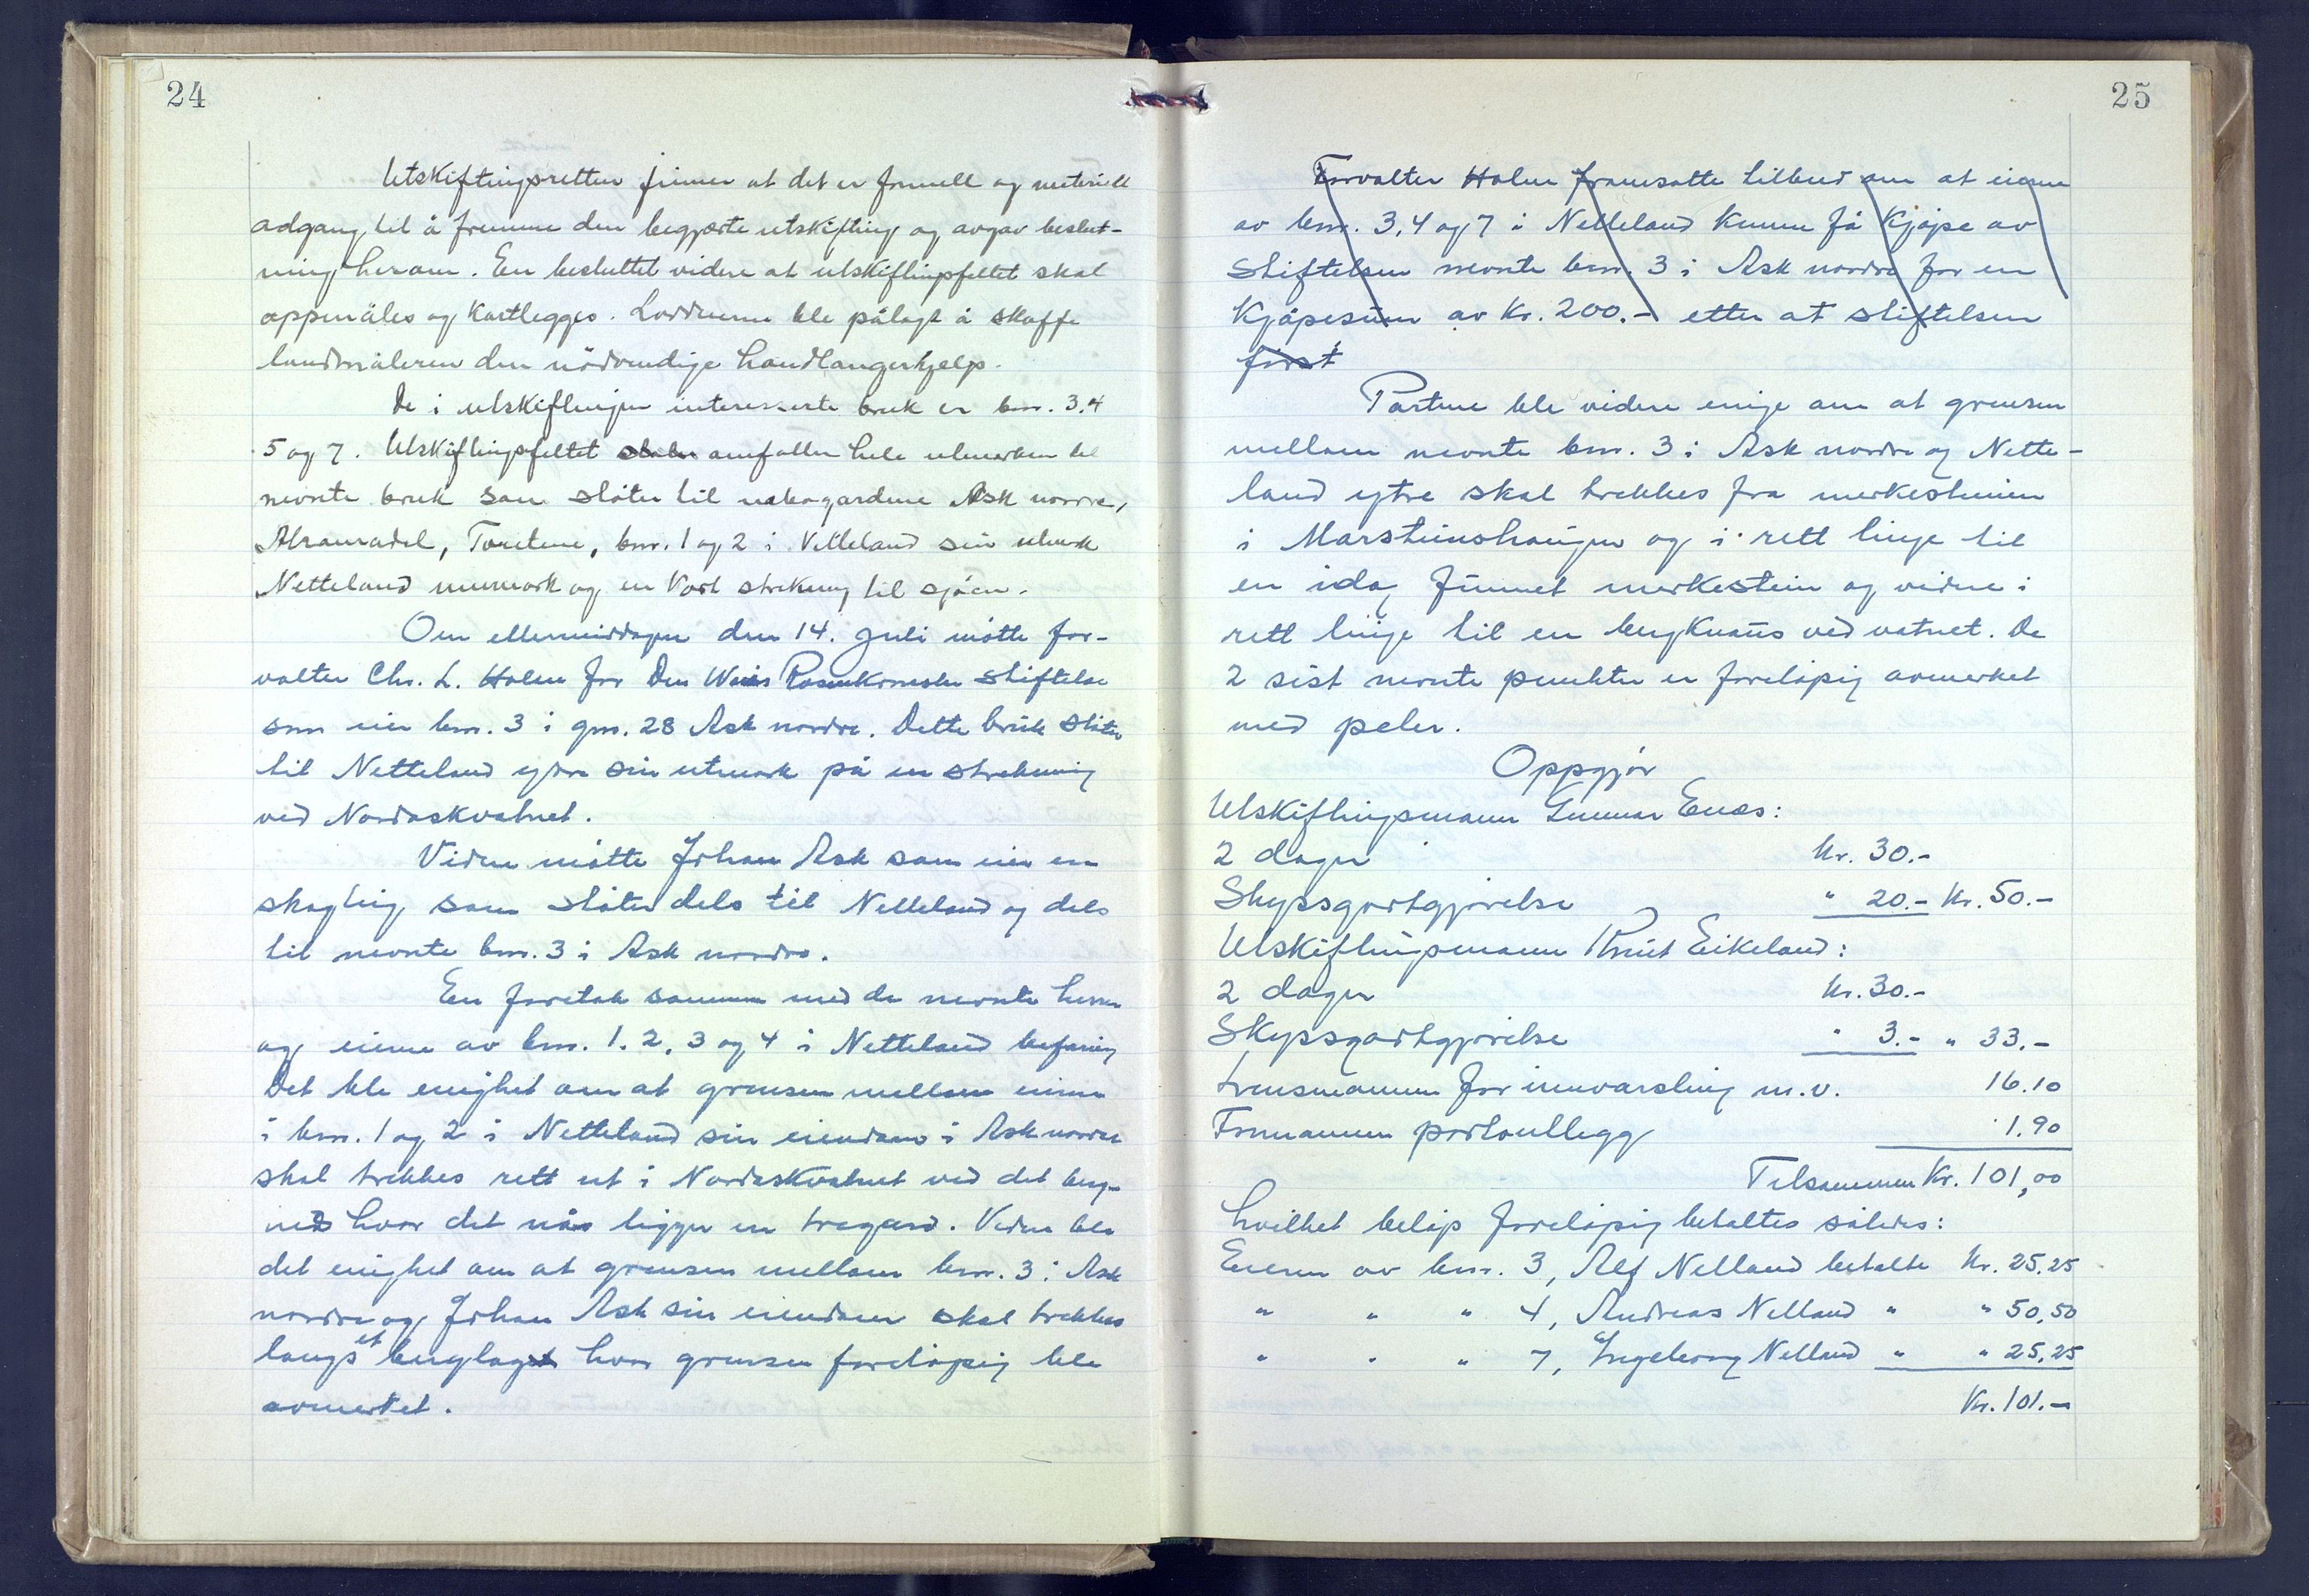 24
Utskiftingsretten finner at det er formell og materiell
adgang til å fremme den begjærte utskifting og avgav beslut-
ning herom. En besluttet videre at utskiftingsfeltet skal
oppmåles og kartlegges. Loddeierne ble pålagt å skaffe
landmåleren den nödvendige handlangerhjelp.
De i utskiftingen interesserte bruk er bnr. 3, 4
5 og 7. Utskiftingsfeltet omfatter hele utmarken til
nevnte bruk som støter til nabogardene Ask nordre,
Abramadal, Tveitene, bnr. 1 og 2 i Netteland sin utmark
Netteland innmark og en kort strekning til sjøen.
Om ettermiddagen den 14. juli møtte for-
valter Chr. L. Holm for Den Weis Rosenkroneske stiftelse
som eier bnr. 3 i gnr. 28 Ask nordre. Dette bruk støter
til Netteland ytre sin utmark på en strekning
ved Nordaskvatnet.
Videre møtte Johan Ask som eier en
skogteig som støter dels til Netteland og dels
til nevnte bnr. 3 i Ask nordre.
En foretok sammen med de nevnte herrer
og eierne av bnr. 1, 2, 3 og 4 i Netteland befaring
Det ble enighet om at grensen mellom eierne
i bnr. 1 og 2 i Netteland sin eiendom i Ask nordre
skal trekkes rett ut i Nordaskvatnet ved det berg-
nes hvor det nå ligger en tregard. Videre ble
det enighet om at grensen mellom bnr. 3 i Ask
nordre og Johan Ask sin eiendom skal trekkes
langs et berglag hvor grensen foreløpig ble
avmerket.
25
Forvalter Holm framsatte tilbud om at eierne
av bnr. 3, 4 og 7 i Netteland kunne få kjøpe av
Stiftelsen nevnte bnr. 3 i Ask nordre for en
Kjøpesum av kr. 200.- etter at stiftelsen
først
Partene ble videre enige om at grensen
mellom nevnte bnr. 3 i Ask nordre og Nette-
land ytre skal trekkes fra merkesteinen
i Marsteinshaugen og i rett linje til
en idag funnet merkestein og videre i
rett linje til en bergknaus ved vatnet. De
2 sist nevnte punkter er foreløpig avmerket
med peler.
Oppgjør
Utskiftingsmann Gunnar Enes:
2 dager Kr. 30.-
Skyssgodtgjørelse " 20.- Kr. 50.-
Utskiftingsmann Knut Eikeland:
2 dager Kr. 30.-
Skyssgodtgjørelse " 3.- " 33.-
Lensmannen for innvarsling m.v. 16.10
Formannen portoutlegg 1.90
Tilsammen Kr. 101,00
hvilket beløp foreløpig betaltes således:
Eieren av bnr. 3, Alf Nelland betalte Kr. 25,25
" " " 4, Andreas Nelland " " 50,50
" " " 7, Ingeborg Nelland " " 25,25
Kr. 101.-